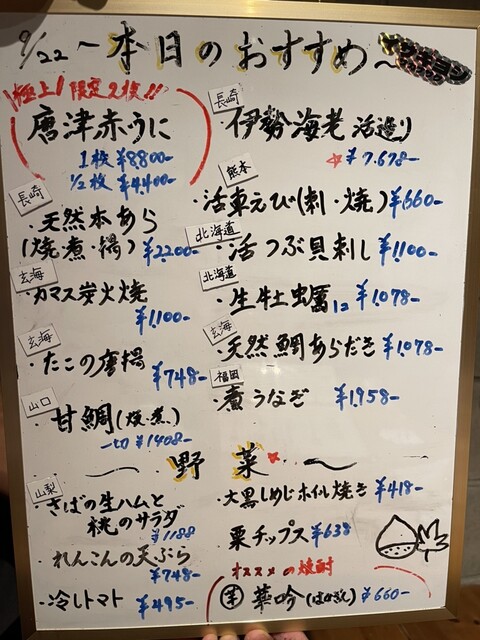 9/22 ～本日のおすすめ～
極上! 限定2枚!!
唐津赤うに
1枚 ¥8800-
1/2枚 ¥4400-
長崎
・天然本あら
(焼・煮・揚) ¥2200-
玄海
・カマス炭火焼
¥1100-
玄海
・たこの唐揚
¥748-
山口
・甘鯛(焼・煮)
一切 ¥1408-
長崎
・伊勢海老 活造り
☆¥7.678-
熊本
・活車えび(刺・焼) ¥660-
北海道
・活つぶ貝刺し ¥1100-
北海道
・生牡蠣 1コ ¥1078-
玄海
・天然鯛あらだき ¥1078-
福岡
・煮うなぎ ¥1958-
～野菜～
山梨
・さばの生ハムと
桃のサラダ
¥1188
・れんこんの天ぷら
¥748-
・冷しトマト ¥495-
・大黒しめじホイル焼き ¥418-
・栗チップス ¥638
オススメの焼酎
¥660-